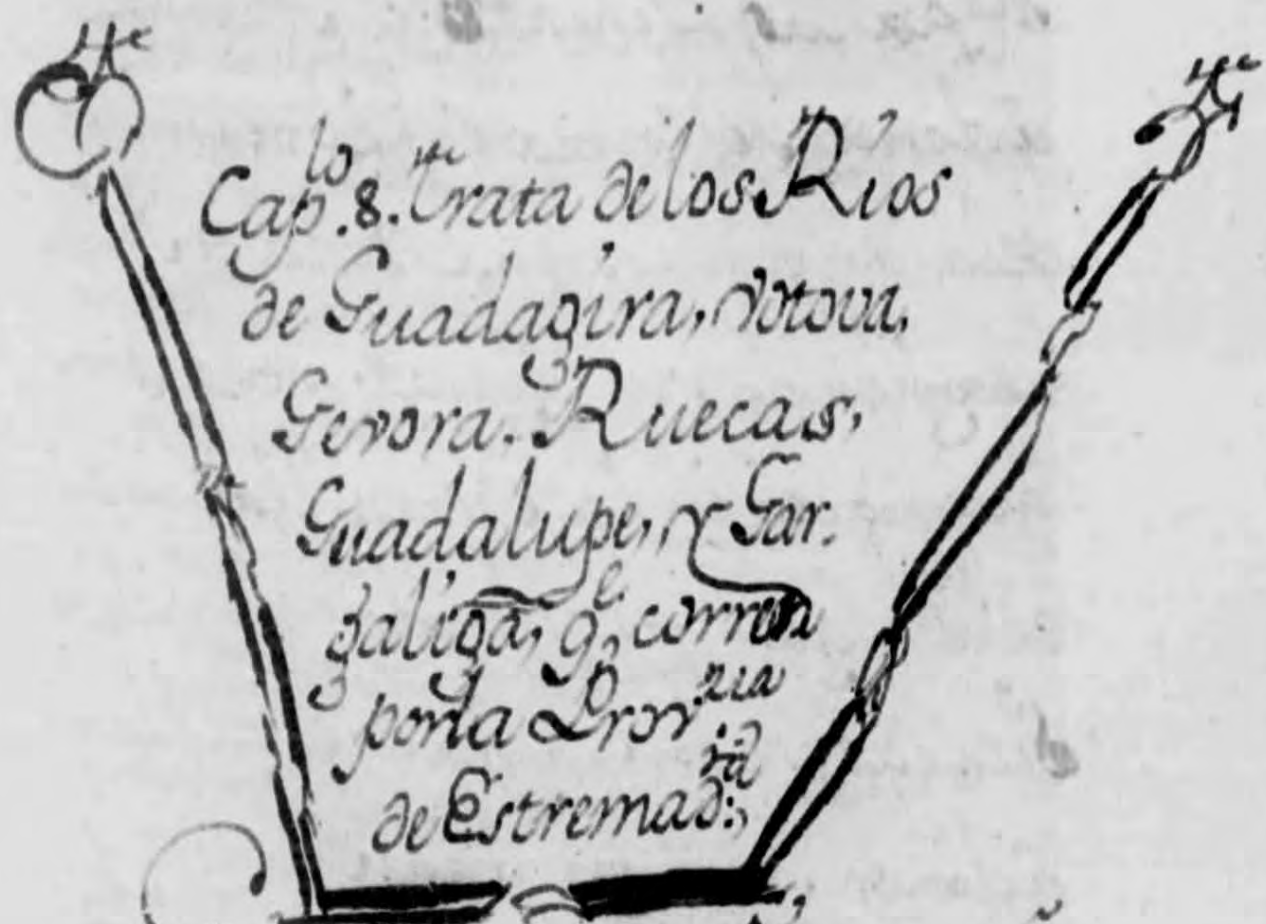 Cap.lo 8. Trata de los Rios
de Guadagira, Botova,
Gevora. Ruecas,
Guadalupe, y Gar.
galiga, q.e corren
por la Prov.nzia
de Estremad.ra